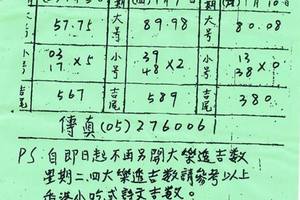 大号 57.75 大号 89.98 大号 80.08
小号 03 17 ×5 小号 39 48 ×2 小号 13 38 ×0
吉尾 567 吉尾 589 吉尾 380
傳真(05)276006
PS: 自即日起不再另開大樂透吉数
星期二.四大樂透吉数請參考以上